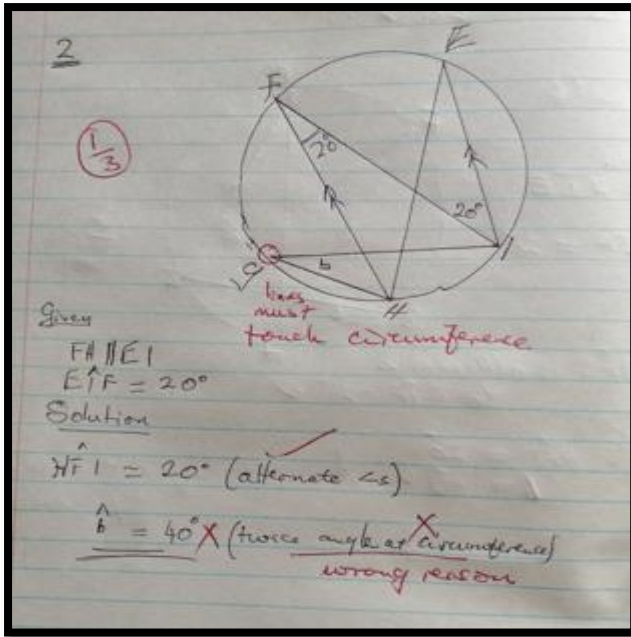 2
E
F
1/3
20°
20°
G
b
I
H
lines
must
touch circumference
Given
FH || EI
EÎF = 20°
Solution
HF̂I = 20° (alternate <s)
b̂ = 40° X (twice angle at circumference)
wrong reason